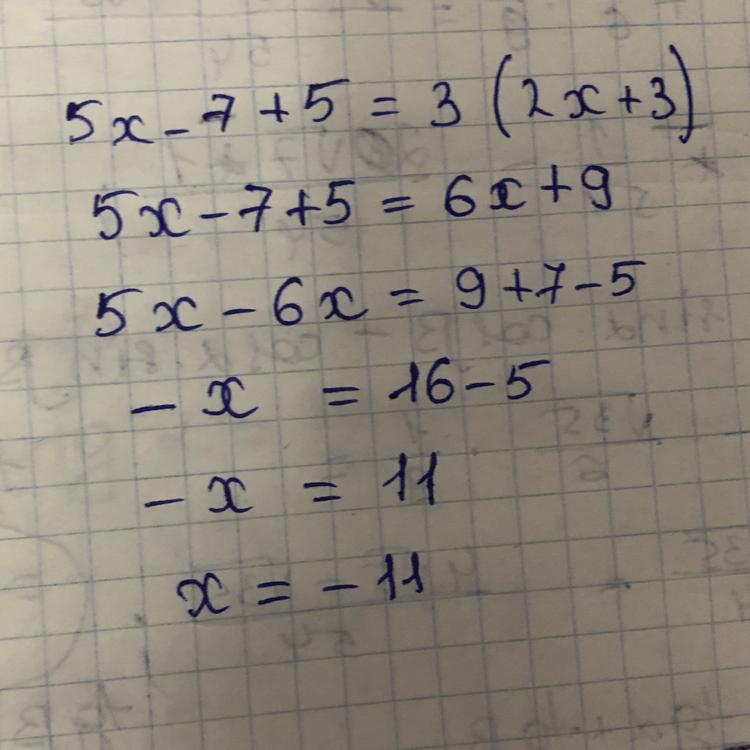 5x - 7 + 5 = 3 (2x + 3)
5x - 7 + 5 = 6x + 9
5x - 6x = 9 + 7 - 5
- x = 16 - 5
- x = 11
x = - 11